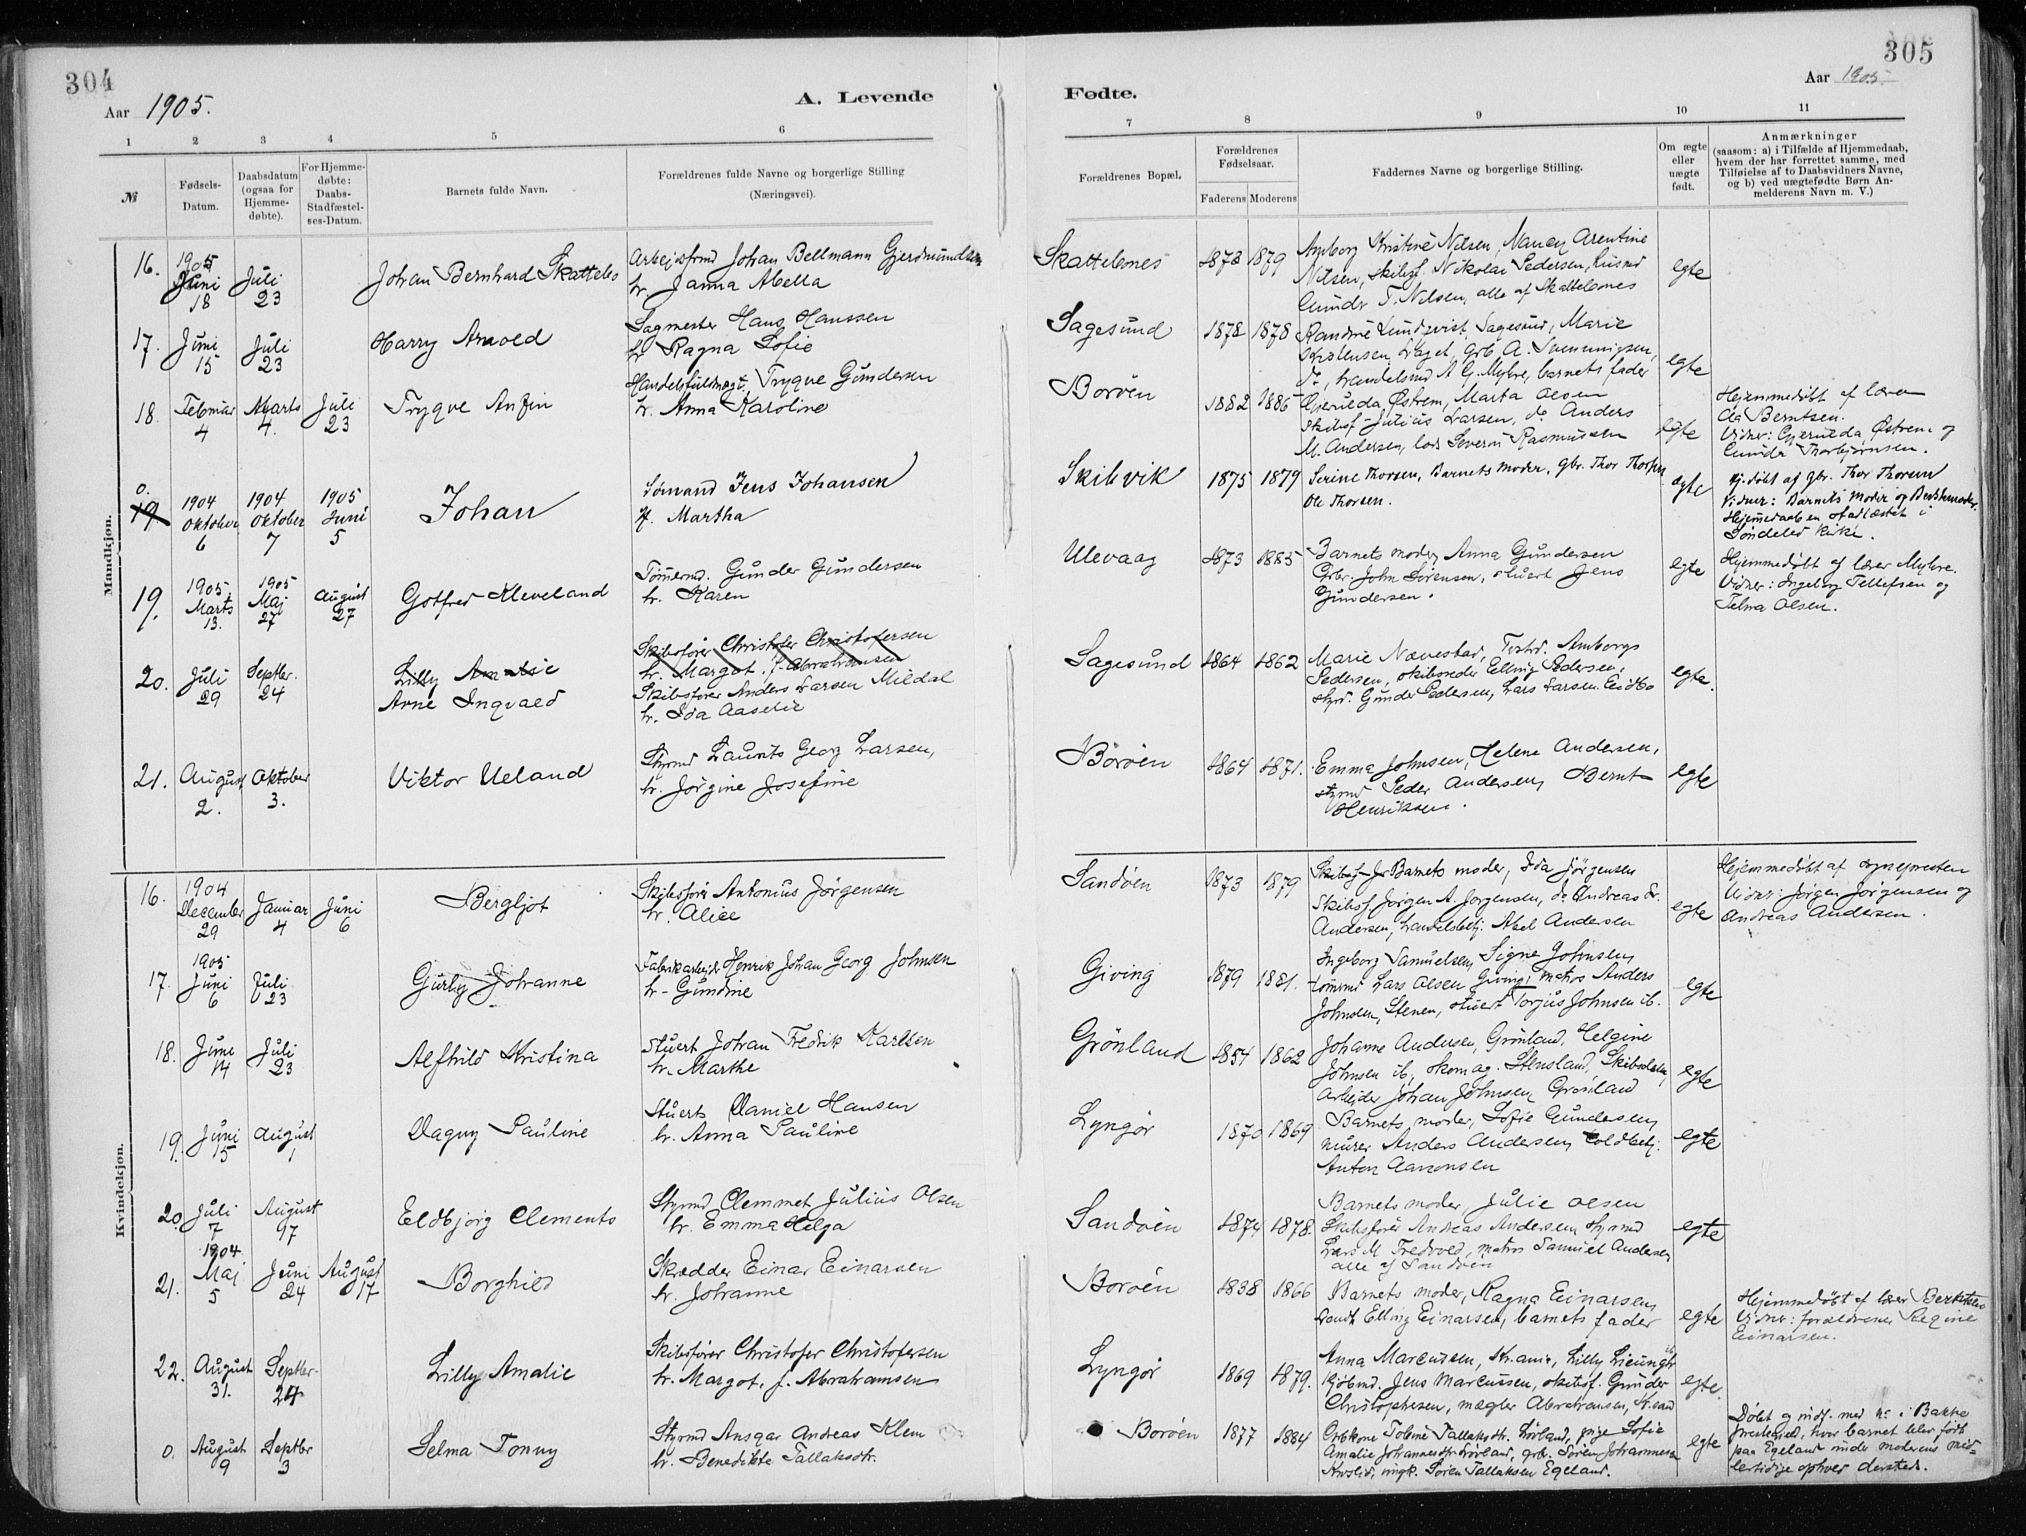 304
Aar 1905.
A. Levende
1
2
3
4
5
6
№
Fødsels-
Datum.
Daabsdatum
(ogsaa for
Hjemme-
døbte).
For Hjemme-
døbte:
Daabs-
Stadfæstel-
ses-Datum.
Barnets fulde Navn.
Forældrenes fulde Navne og borgerlige Stilling
(Næringsvei).
Mandkjøn.
16.
1905
Juni
18
Juli
23
Johan Bernhard Skattebo
Arbejdsfmd Johan Bellmann Gjerdmundsen
h. Janna Abella
17.
Juni
15
Juli
23
Harry Arnold
Sagmester Hans Hanssen
h. Ragna Sofie
18.
Februar
4
Marts
4.
Juli
23
Trygve Anfin
Handelsfuldmægt. Trygve Gundersen
h. Anna Karoline
0.
19.
1904
Oktober
6
1904
Oktober
7
1905
Juni
5
Johan
Sømand Jens Johansen
H. Martha
19.
1905.
Marts
13.
1905
Maj
27
August
27
Gotfred Kleveland
Tømermd. Gunder Gundersen
h. Karen
20.
Juli
29
Septbr.
24
Lilly Amalie
Arne Ingvald
Skibsfører Christofer Christofersen
h. Margot, f. Abrahamsen
Skibsfører Anders Larsen Mildal
h. Ida Aaselie
21.
August
2.
Oktober
3.
Viktor Ueland
Styrmd Laurits Georg Larsen,
h. Jørgine Josefine
Kvindekjøn.
16.
1904
December
29
Januar
4
Juni
6
Bergljot
Skibsfører Antonius Jørgensen
h. Alice
17.
1905
Juni
6
Juli
23
Gurly Johanne
Fabrikarbejd. Henrik Johan Georg Johnsen
h. Gundine
18.
Juni
14
Juli
23
Alfhild Kristina
Stuert Johan Fredrik Karlsen
h. Marthe
19.
Juni
5
August
1
Dagny Pauline
Stuert Daniel Hansen
h. Anna Pauline
20.
Juli
7
August
17
Eldbjørg Clements
Styrmd Clemmet Julius Olsen
h. Emma Helga
21.
1904
Maj
5
Juni
24
August
17
Borghild
Skrædder Einar Einarsen
h. Johanne
22.
August
31.
Septbr.
24
Lilly Amalie
Skibsfører Christofer Christofersen
h. Margot, f. Abrahamsen
0.
August
9
Septbr
3
Selma Tonny
Styrmd Ansgar Andreas Klem
h. Benedikte Tallaksdtr.
305
Aar 1905.
Fødte.
7
8
9
10
11
Forældrenes Bopæl.
Forældrenes
Fødselsaar.
Faderens
Moderens
Faddernes Navne og borgerlige Stilling.
Om ægte
eller
uægte
født.
Anmærkninger
(saasom: a) i Tilfælde af Hjemmedaab,
hvem der har forrettet samme, med
Tilføielse af to Daabsvidners Navne,
og b) ved uægtefødte Børn An-
melderens Navn m. V.)
Skattebones
1873
1879
Kristine Nilsen, Nancy Arentine
Nilsen, skibsf. Nikolai Pedersen,
Gunder T. Nilsen, alle af Skattebones
egte
Sagesund
1878
1878
Randine Lundqvist, Sagesund, Marie
A. Svenningsen,
A. G. Myhre, barnets fader
egte
Borøen
1882
1885
Gjerulda Østrem, Marta Olsen
Skibsf. Julius Larsen, do Anders
M. Andersen, lods Severin Rasmussen
egte
Hjemmedøbt af lærer
Berntsen.
Vidner: Gjerulda Østrem og
Gunder Thorbjørnsen.
Skibvik
1875
1879
Serine Thorsen, Barnets moder, gbr. Thor Thorsen
Ole Thorsen.
egte
Hj. døbt af gbr. Thor Thorsen
Vidner: Barnets moder og Bestemoder.
Hjemmedaaben stadfæstet i
Søndeled kirke.
Ulevaag
1873
1885
Barnets moder, Anna Gundersen
Grbr. John Sørensen, stuert Jens
Gundersen.
egte
Hjemmedøbt af lærer Myhre.
Vidner: Ingeborg Tellefsen og
Telma Olsen.
Sagesund
1864
1862
Marie Nævestad, Amborg
Pedersen, skibsreder Elling Pedersen,
styrmd. Gunder Pedersen, Lars Larsen Eidbo
egte.
Borøen
1864
1871.
Emma Johnsen, Helene Andersen,
styrmd Peder Andersen, Bernt
Henriksen.
egte
Sandøen
1873
1879
Barnets moder, Ida Jørgensen
Skibsf. Jørgen A. Jørgensen, do Andreas Fr.
Andersen, handelsbetj. Axel Andersen
egte
Hjemmedøbt af sognepresten
Vidner: Jørgen Jørgensen og
Andreas Andersen.
Giving
1879
1881.
Ingeborg Samuelsen, Signe Johnsen,
tømrmd Lars Olsen Giving, matros Anders
Johnsen, Stenen, stuert Torjus Johnsen ib.
egte
Grønland
1854
1862
Johanne Andersen, Grønland, Helgine
Johnsen ib, skomag. Stensland,
Arbejder Johan Johnsen, Grønland
egte
Lyngør
1870
1869
Barnets moder, Sofie Gundersen,
murer Anders Andersen, toldbetj.
Anton Aanonsen
egte
Sandøen
1874
1878.
Barnets moder, Julie Olsen
Skibsfører Andreas Andersen, styrmd
Lars M. Tredved, matros Samuel Andersen,
alle af Sandøen
egte
Borøen
1838
1866
Barnets moder, Ragna Einarsen,
Elling Einarsen, barnets fader
egte
Hjemmedøbt af lærer
Vidner: forældrene, Regine
Einarsen.
Lyngør
1869
1879.
Anna Marcussen, Lilly
Kjøbmd. Jens Marcussen, skibsf. Gunder
Christophersen, mægler Abrahamsen,
egte.
Borøen
1877
1884
Grbkone Tobine Tallaksdtr. Lørland, pige Sofie
Amalie Johannesdtr Lørland, grbr. Søren Johannesen
ungk. Søren Tallaksen Egeland.
egte
Døbt og indf. med № i Bakke
hvor barnet blev født
paa Egeland under moderens mid-
lertidige ophold dersteds.